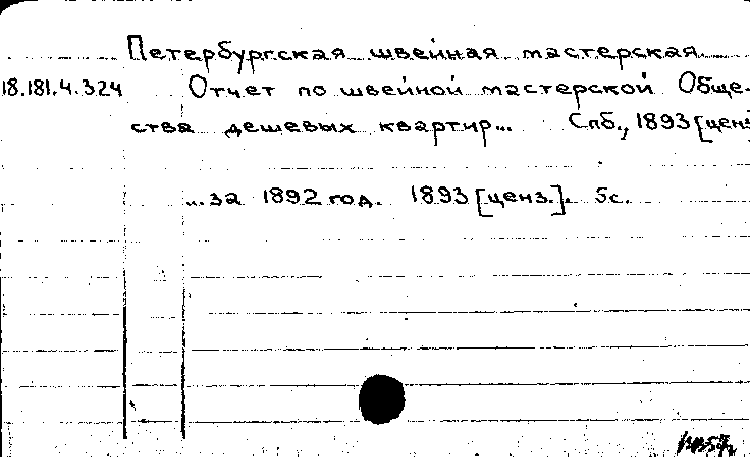 Петербургская швейная мастерская
18.181.4.324 Отчет по швейной мастерской Обще-
ства дешевых квартир... Спб., 1893 [ценз
...за 1892 год. 1893 [ценз.]. 5с.